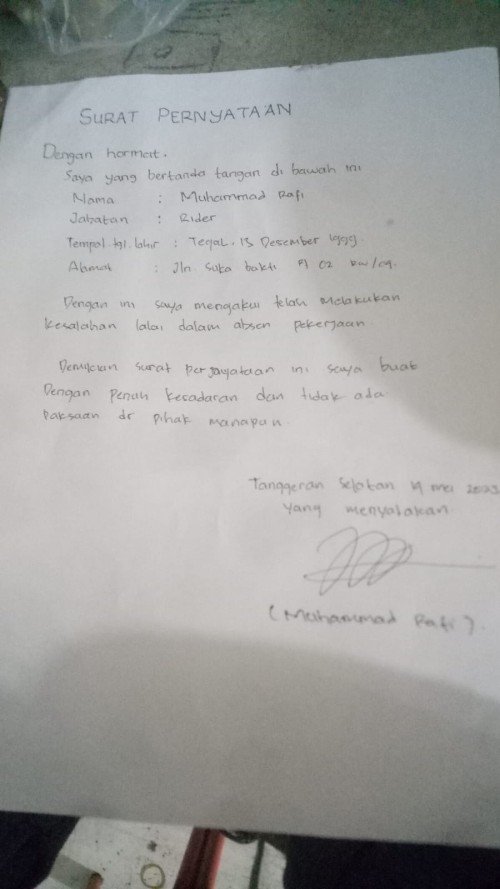 SURAT PERNYATAAN
Dengan hormat.
Saya yang bertanda tangan di bawah ini
Nama : Muhammad Rafi
Jabatan : Rider
Tempat.tgl.lahir : Tegal. 13 Desember 1999.
Alamat : Jln. Suka bakti Rt 02 Rw/04.
Dengan ini saya mengakui telah melakukan
kesalahan lalai dalam absen pekerjaan.
Demikian surat pernyataan ini saya buat
Dengan penuh kesadaran dan tidak ada
paksaan dr pihak manapun.
Tanggeran Selatan 19 mei 2023
yang menyatakan
(Muhammad Rafi).